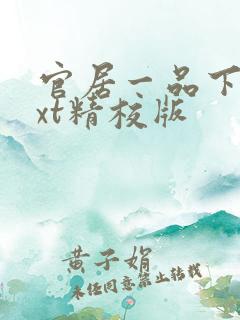 官居一品下
xt精校版
黄子娟
未经同意禁止转载